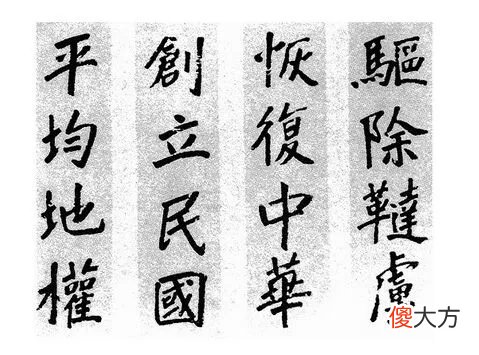 驅除韃虜
恢復中華
創立民國
平均地權
傻大方